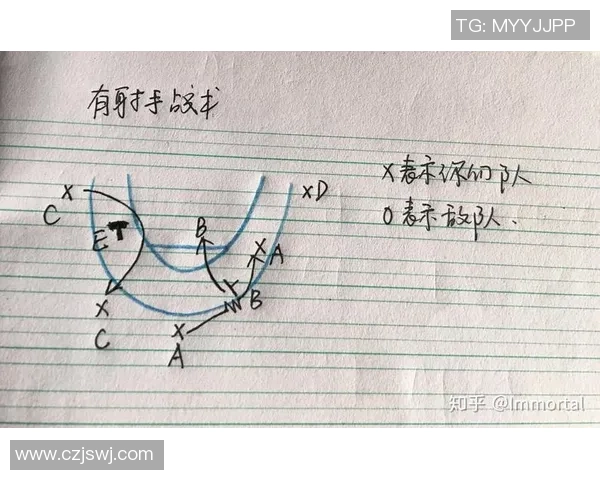 TG: MYYJJPP
有射手战术
X表示你们队
O表示敌队.
X
C
E T
X
C
B
X A
X D
B
X
A
知乎 @Immortal
www.czjswj.com